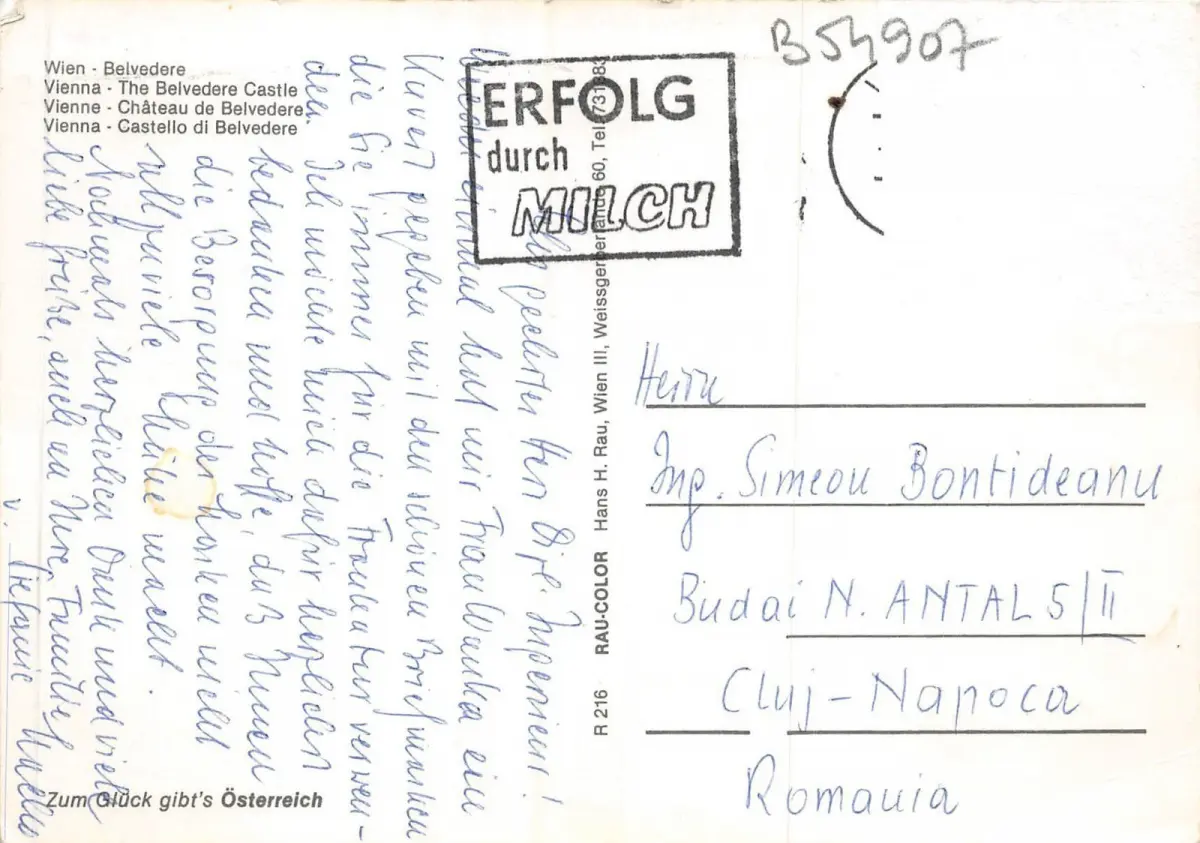 B54907
Wien - Belvedere
Vienna - The Belvedere Castle
Vienne - Château de Belvedere
Vienna - Castello di Belvedere
ERFOLG
durch
MILCH
geehrter Herr Dipl. Ingenieur!
Wieder einmal hat mir Frau Wanka ein
Kuvert gegeben mit den schönen Briefmarken
die Sie immer für die Frankatur verwen-
den. Ich möchte mich dafür herzlichst
bedanken und hoffe, daß Ihnen
die Besorgung der Marken nicht
allzuviele Mühe macht.
Nochmals herzlichen Dank und viele
liebe Grüße, auch an Ihre Familie
v.
Zum Glück gibt's Österreich
R 216 RAU-COLOR Hans H. Rau, Wien III, Weissgerberlände 60, Tel. 731883
Herrn
Ing. Simeon Bontideanu
Budai N. ANTAL 5/II
Cluj-Napoca
Romania